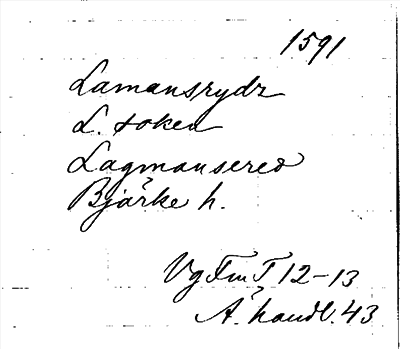 1591
Lamansrydz
L. soken
Lagmansered
Bjärke h.
Vg Fm T 12-13
Ä. handl. 43